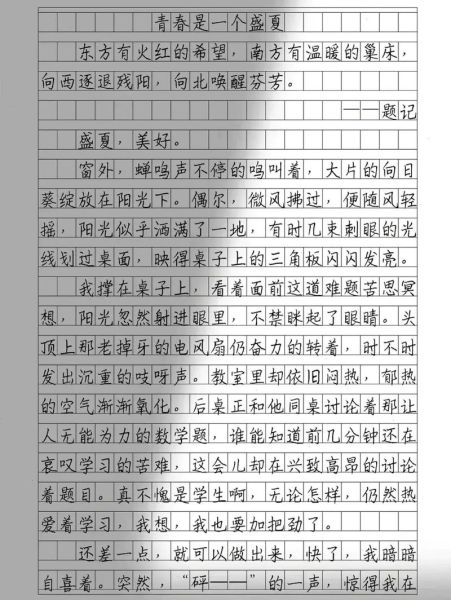 青春是一个盛夏
东方有火红的希望，南方有温暖的巢床，
向西逐退残阳，向北唤醒芬芳。
——题记
盛夏，美好。
窗外，蝉鸣声不停的鸣叫着，大片的向日
葵绽放在阳光下。偶尔，微风拂过，便随风轻
摇，阳光似乎洒满了一地，有时几束刺眼的光
线划过桌面，映得桌子上的三角板闪闪发亮。
我撑在桌子上，看着面前这道难题苦思冥
想，阳光忽然射进眼里，不禁眯起了眼睛。头
顶上那老掉牙的电风扇仍奋力的转着，时不时
发出沉重的吱呀声。教室里却依旧闷热，郁热
的空气渐渐氧化。后桌正和他同桌讨论着那让
人无能为力的数学题，谁能知道前几分钟还在
哀叹学习的苦难，这会儿却在兴致高昂的讨论
着题目。真不愧是学生啊，无论怎样，仍然热
爱着学习，我想，我也要加把劲了。
还差一点，就可以做出来，快了，我暗暗
自喜着。突然，“砰——”的一声，惊得我在